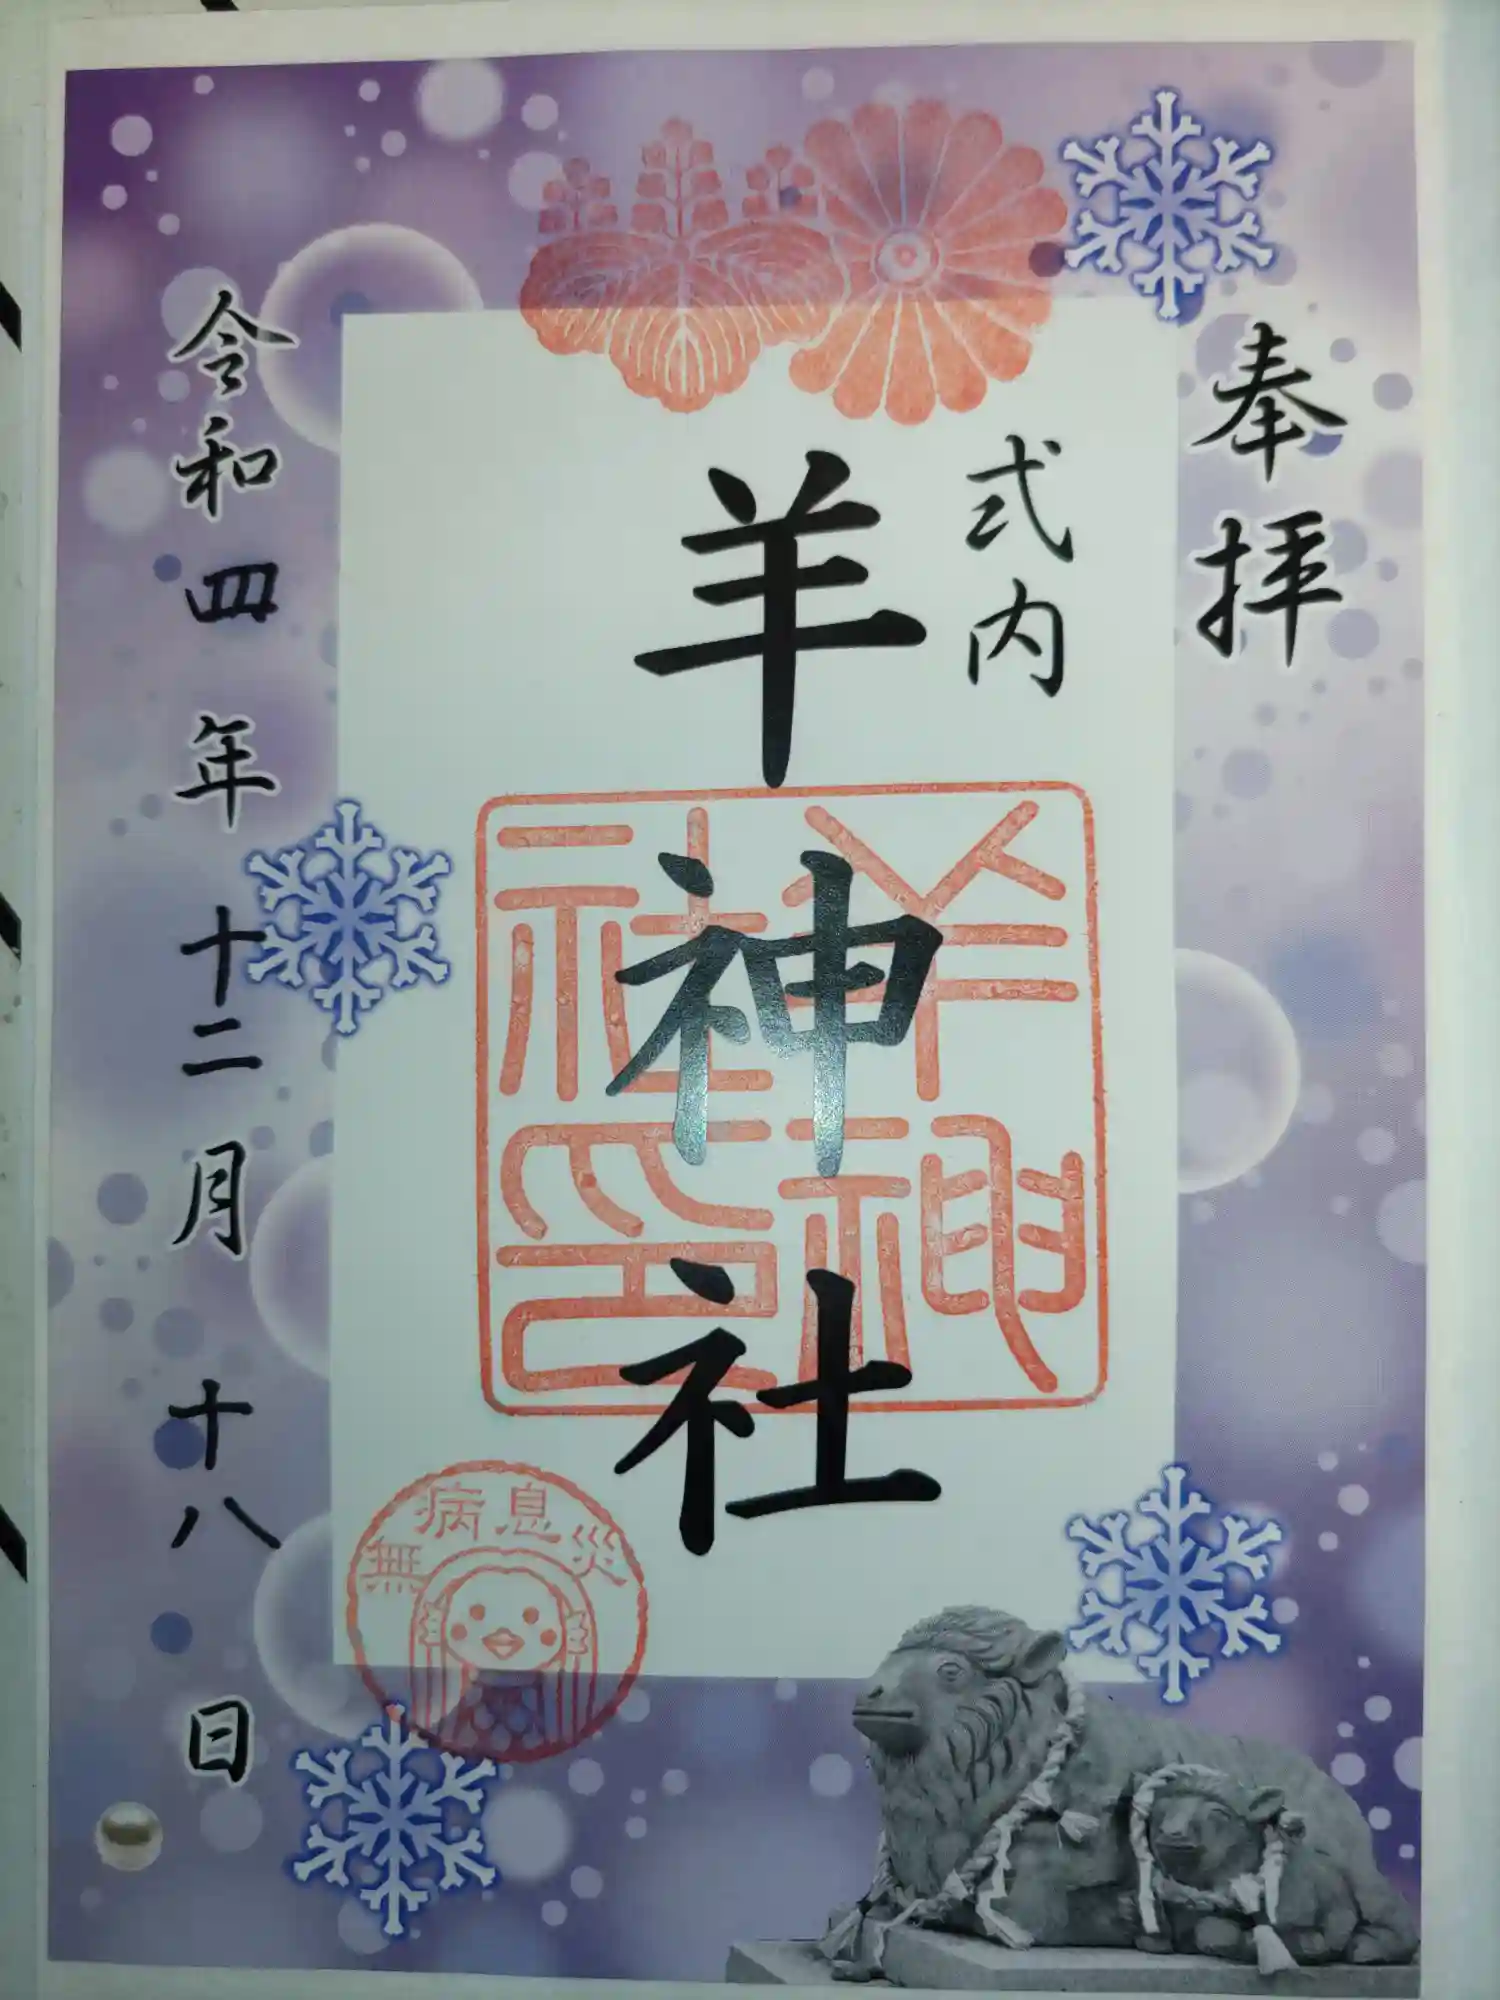 奉拝
式内
羊神社
羊神社印
令和四年十二月十八日
無病息災